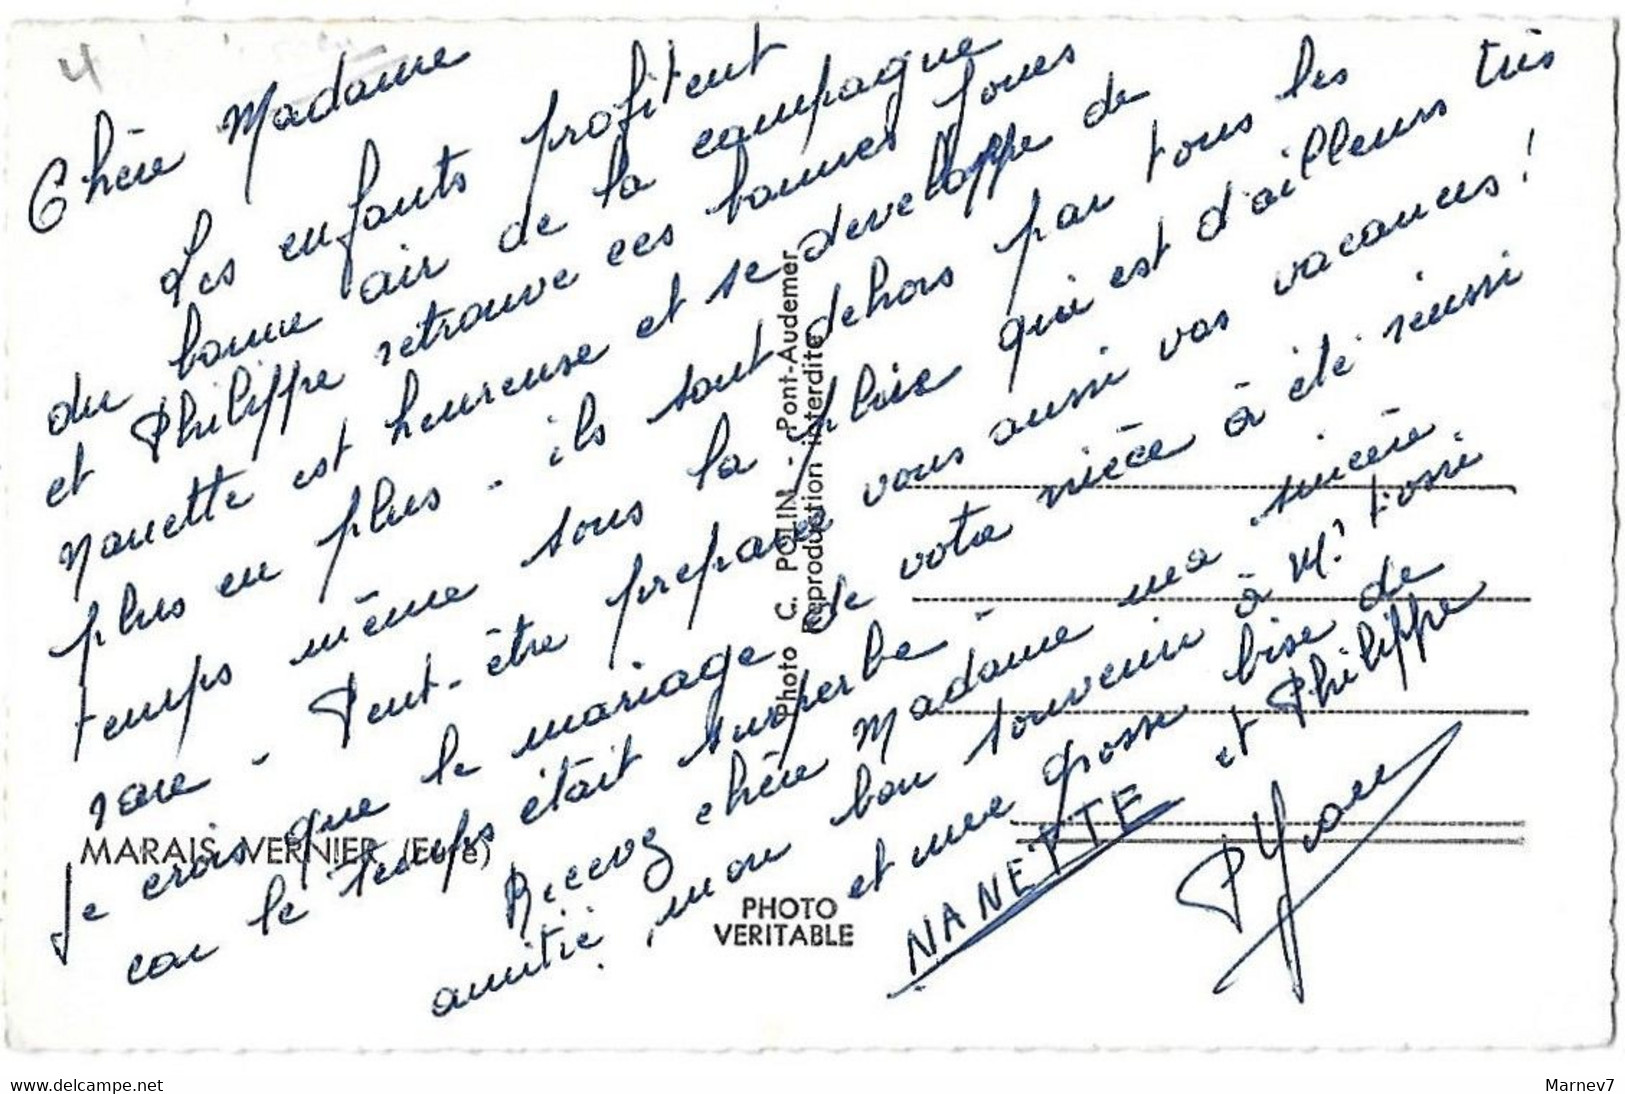 4
Chère Madame
Les enfants profitent
du bonne air de la campagne
et Philippe retrouve ces bonnes joues
Nanette est heureuse et se developpe de
plus en plus - ils sont dehors par tous les
temps même sous la pluie qui est d'ailleurs très
rare - Peut-être preparez vous aussi vos vacances !
Je crois que le mariage de votre nièce à été réussi
car le temps était superbe -
Recevez chère Madame ma sincère
amitié, mon bon souvenir à Mr
et une grosse bise de
NANETTE et Philippe
MARAIS VERNIER (Eure)
Photo C. POLIN - Pont-Audemer
Reproduction interdite
PHOTO
VERITABLE
www.delcampe.net
Marnev7